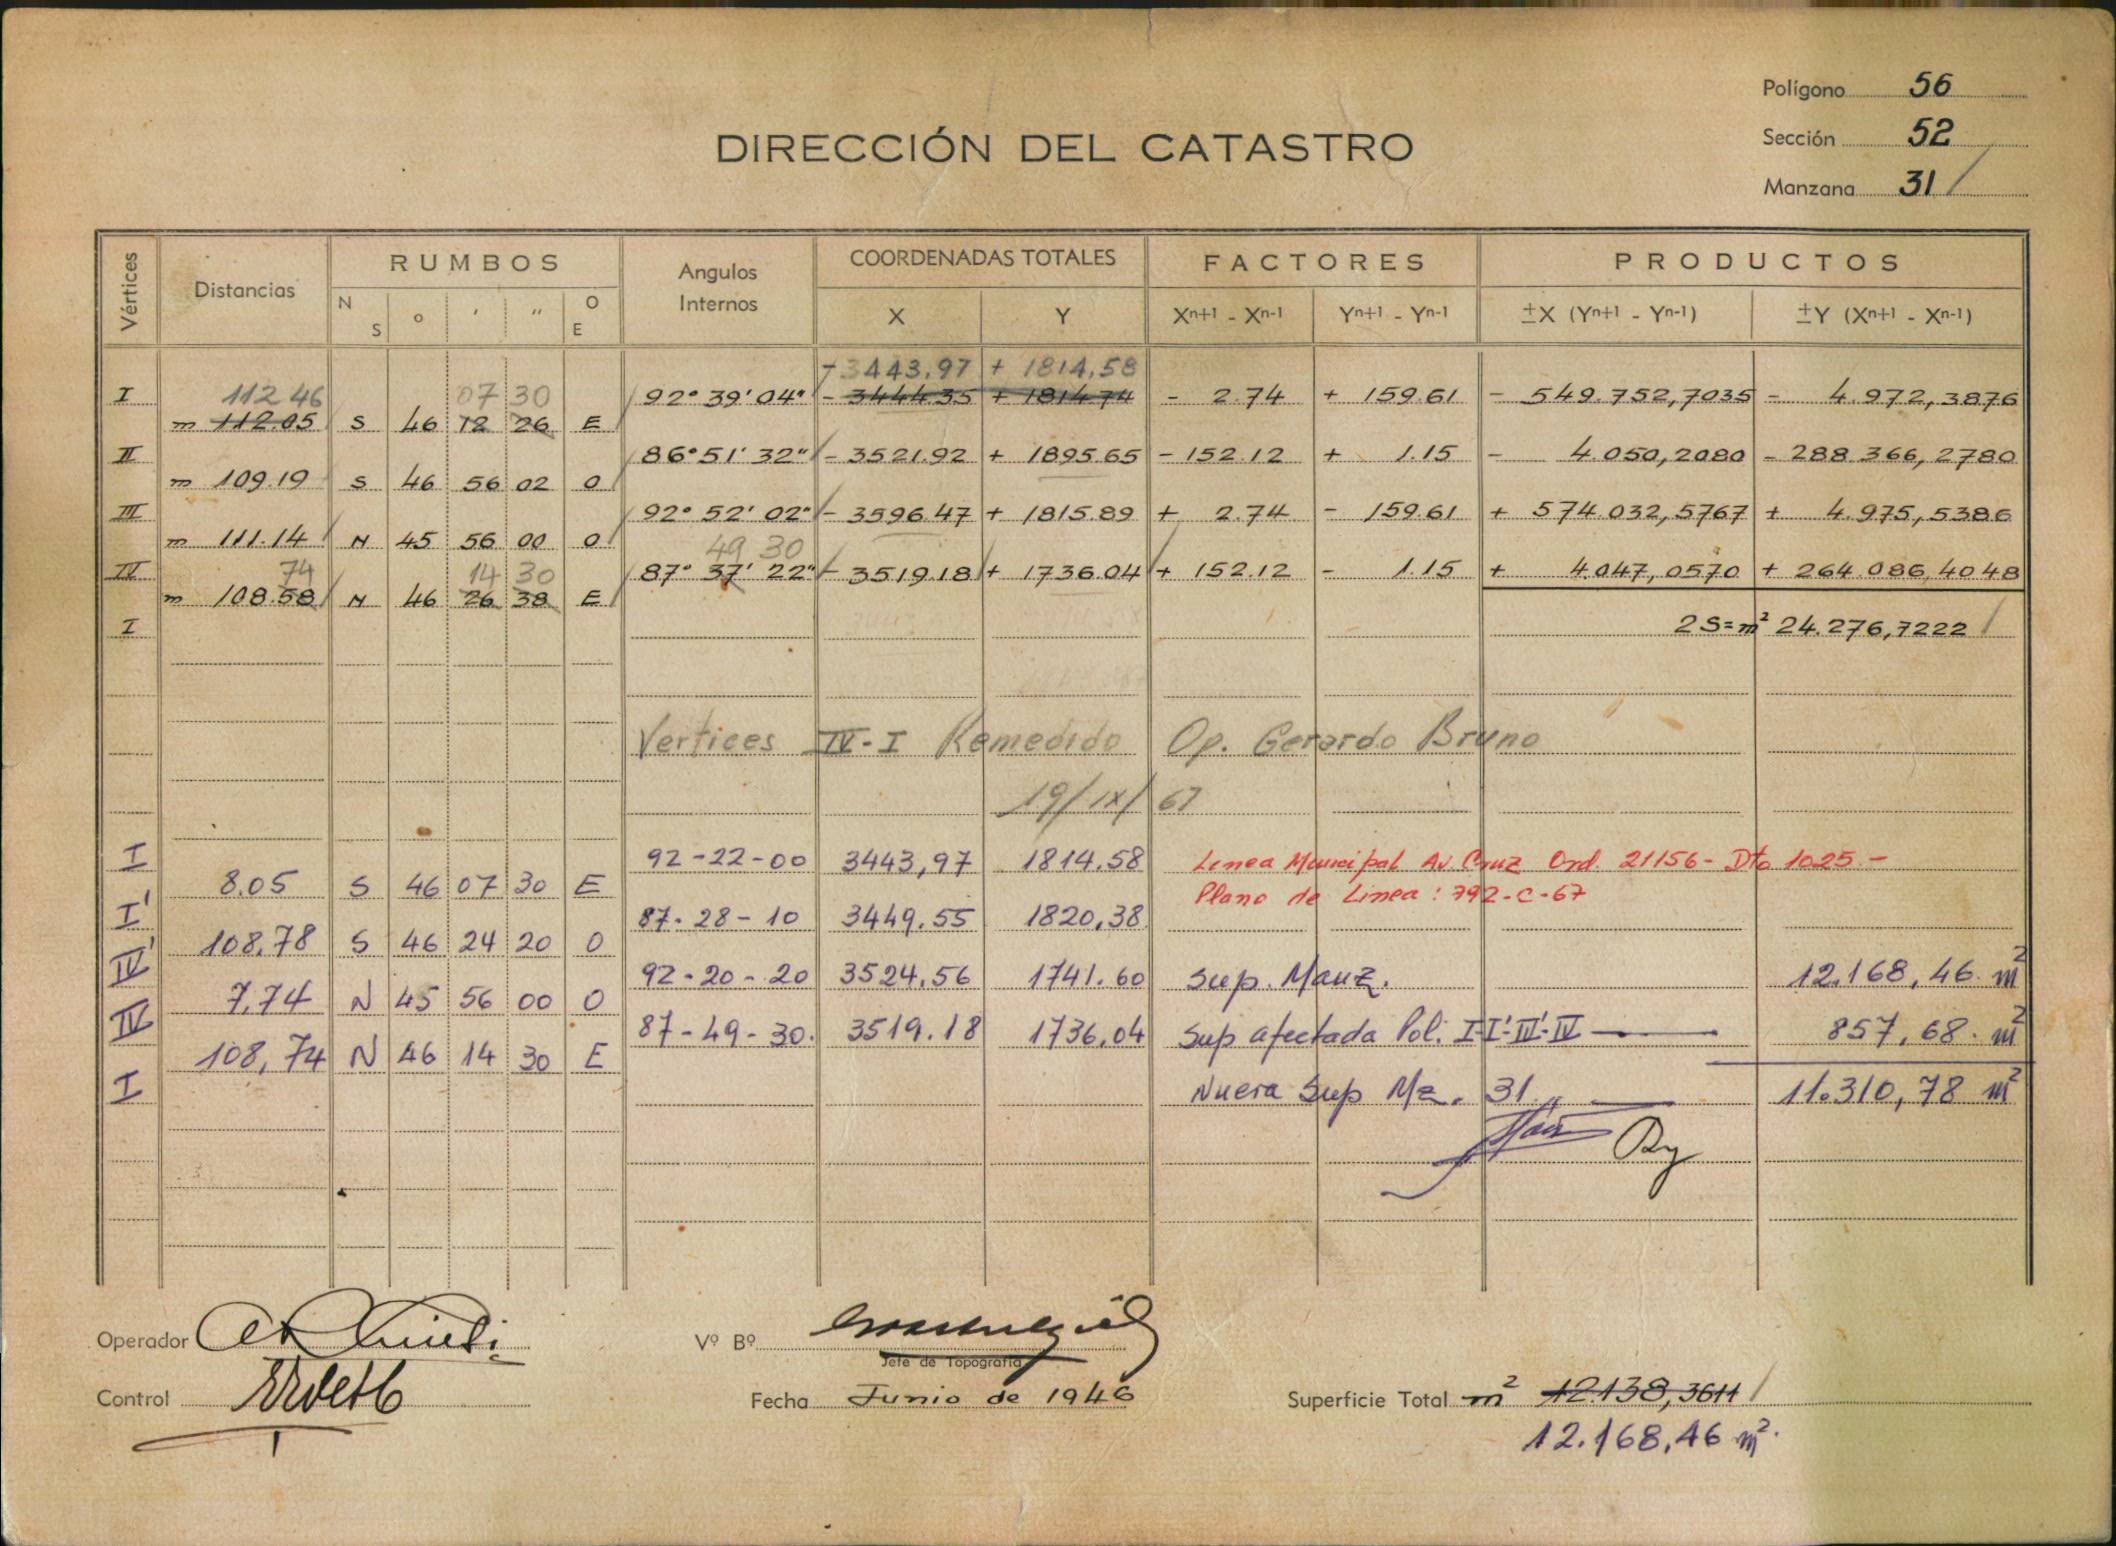 Polígono 56
DIRECCIÓN DEL CATASTRO
Sección 52
Manzana 31
Vértices Distancias RUMBOS Angulos Internos COORDENADAS TOTALES FACTORES PRODUCTOS
N S ° ' " O E X Y Xn+1 - Xn-1 Yn+1 - Yn-1 ±X (Yn+1 - Yn-1) ±Y (Xn+1 - Xn-1)
- 3443,97 + 1814,58
I 92° 39' 04" - 3444.35 + 1814.74 - 2.74 + 159.61 - 549.752,7035 - 4.972,3876
112.46 07 30
m 112.05 S 46 12 26 E
II 86° 51' 32" - 3521.92 + 1895.65 - 152.12 + 1.15 - 4.050,2080 - 288.366,2780
m 109.19 S 46 56 02 O
III 92° 52' 02" - 3596.47 + 1815.89 + 2.74 - 159.61 + 574.032,5767 + 4.975,5386
m 111.14 N 45 56 00 O
49 30
IV 87° 37' 22" - 3519.18 + 1736.04 + 152.12 - 1.15 + 4.047,0570 + 264.086,4048
74 14 30
m 108.58 N 46 26 38 E
I 2S=m² 24.276,7222
Vertices IV-I Remedido Op. Gerardo Bruno
19/IX/67
I 92-22-00 3443,97 1814.58 Linea Municipal Av. Cruz Ord. 21156 - Dto 1025.-
8.05 S 46 07 30 E Plano de Linea: 792-C-67
I' 87-28-10 3449.55 1820,38
108,78 S 46 24 20 O
IV' 92-20-20 3524,56 1741.60 Sup. Manz. 12.168,46 m²
7.74 N 45 56 00 O
IV 87-49-30. 3519.18 1736,04 Sup afectada Pol. I-I'-IV'-IV 857,68 m²
108,74 N 46 14 30 E
I Nueva Sup Mz. 31 11.310,78 m²
Operador
Vº Bº
Jefe de Topografía
Control
Fecha Junio de 1946
Superficie Total m² 12.138,3611
12.168,46 m².